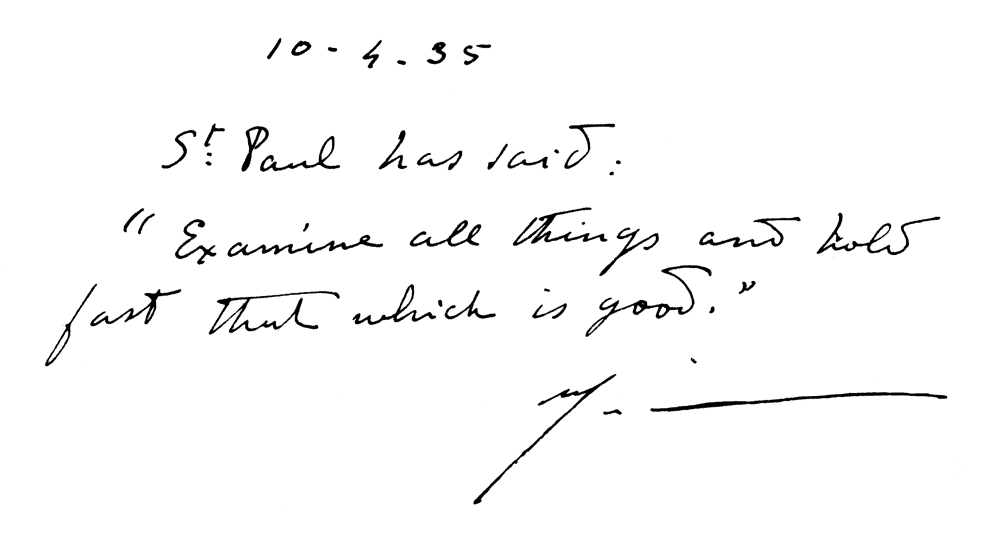 10-4.35
St. Paul has said:
"Examine all things and hold
fast that which is good."